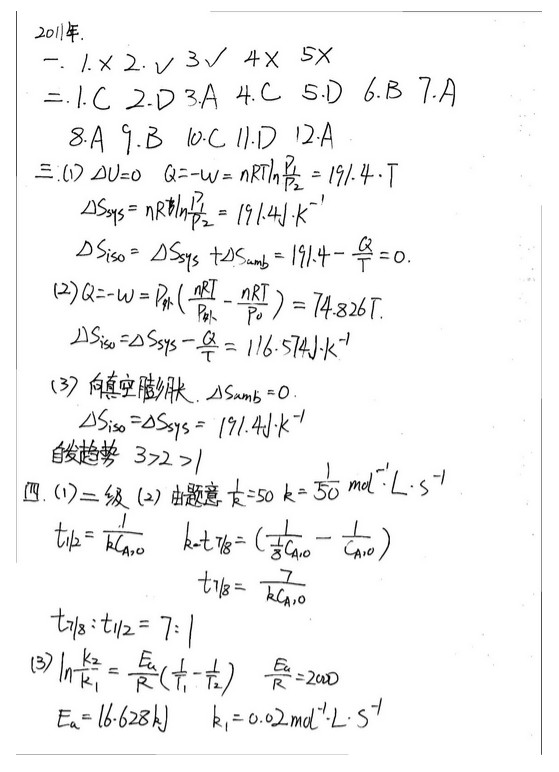 2011年.
一. 1.× 2.√ 3√ 4× 5×
二.1.C 2.D 3.A 4.C 5.D 6.B 7.A
8.A 9.B 10.C 11.D 12.A
三.(1) ΔU=0 Q=-W=nRTln P₁/P₂ = 191.4·T
ΔSsys = nRln P₁/P₂ = 191.4J·K⁻¹
ΔSiso = ΔSsys +ΔSamb = 191.4 - Q/T = 0.
(2) Q=-W = P外 ( nRT/P外 - nRT/P₀ ) = 74.826T.
ΔSiso=ΔSsys - Q/T = 116.574J·K⁻¹
(3) 向真空膨胀. ΔSamb=0.
ΔSiso=ΔSsys = 191.4J·K⁻¹
自发趋势 3>2>1
四.(1) 二级 (2) 由题意 1/k=50 k= 1/50 mol⁻¹·L·s⁻¹
t1/2 = 1/kCA,0 k·t7/8 = ( 1/(1/8 CA,0) - 1/CA,0 )
t7/8 = 7/kCA,0
t7/8 : t1/2 = 7:1
(3) ln k₂/k₁ = Ea/R ( 1/T₁ - 1/T₂ ) Ea/R = 2000
Ea = 16.628kJ k₁ = 0.02mol⁻¹·L·S⁻¹